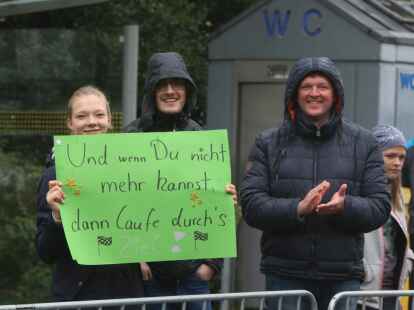 WC
Und wenn Du nicht
mehr kannst,
dann laufe durch's
Ziel!